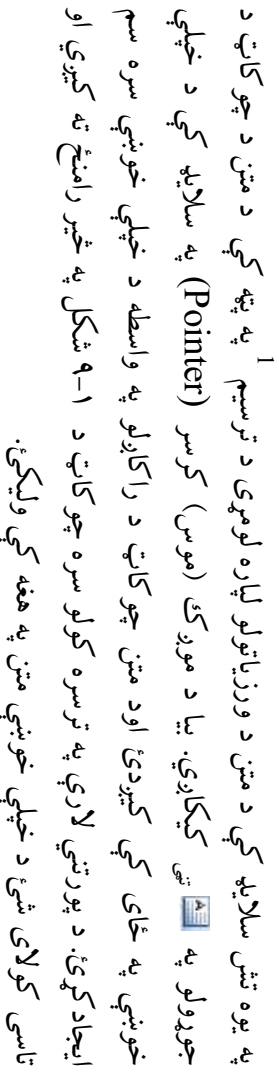 په يوه تش سلايډ کې د متن د ورزياتولو لپاره لومړی د ترسيم¹ په پټه کې د متن د چوکاټ د
جوړولو په تڼۍ کيکاږي. بيا د موږک (موس) کرسر (Pointer) په سلايډ کې د خپلې
خوښې په ځای کې کيږدئ اود متن چوکاټ د راکاږلو په واسطه د خپلې خوښې سره سم
ايجاد کړئ. د پورتنۍ لارې په ترسره کولو سره چوکاټ د ۱–۹ شکل په څير رامنځ ته کيږي او
تاسې کولای شئ د خپلې خوښې متن په هغه کې وليکئ.